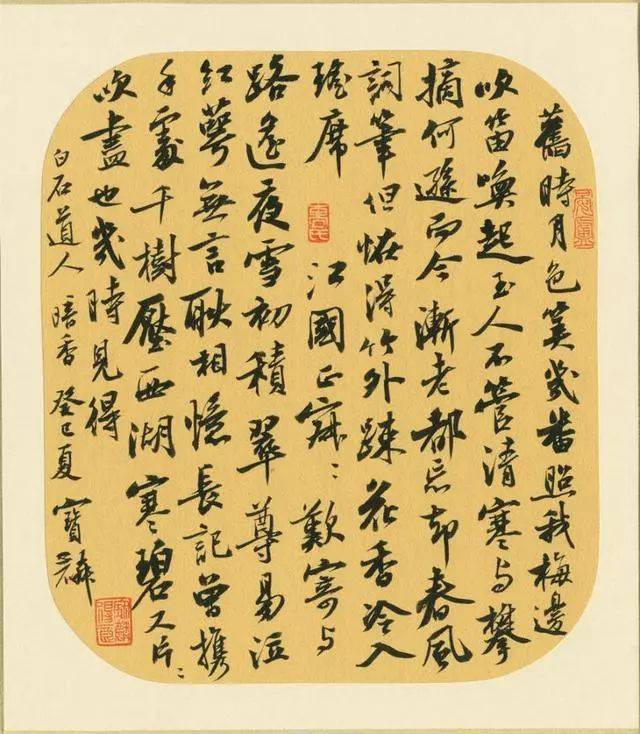 舊時月色筭幾番照我梅邊
吹笛喚起玉人不管清寒与攀
摘何遜而今漸老都忘却春風
詞筆但怪得竹外疎花香冷入
瑤席 江國正寂〻歎寄与
路遙夜雪初積翠尊易泣
紅萼無言耿相憶長記曾携
手處千樹壓西湖寒碧又片〻
吹盡也幾時見得
白石道人暗香 癸巳夏 寶